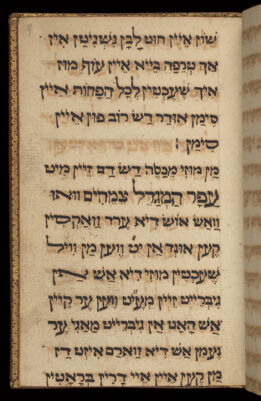 שוין איין חוט לבן גישניטין אין
אך טרפה בייא איין עוף מוז
איך שעכטין לכל הפחות איין
סימן אודר דש רוב פון איין
סימן :
מן מוזי מכסה דש דם זיין מיט
עפר המגדל צמחים וואו
וואש אויש דיא ערד וואקסין
קען אונד אין יט ווען מן וויל
שעכטין מוזי דיא אש
גיברייט זיין מע״ט ווען ער קיין
אש האט אן גיברייט מאג ער
נעמן אש דיא ווארם איזט דז
מן קען איין אײ דרין בראטין